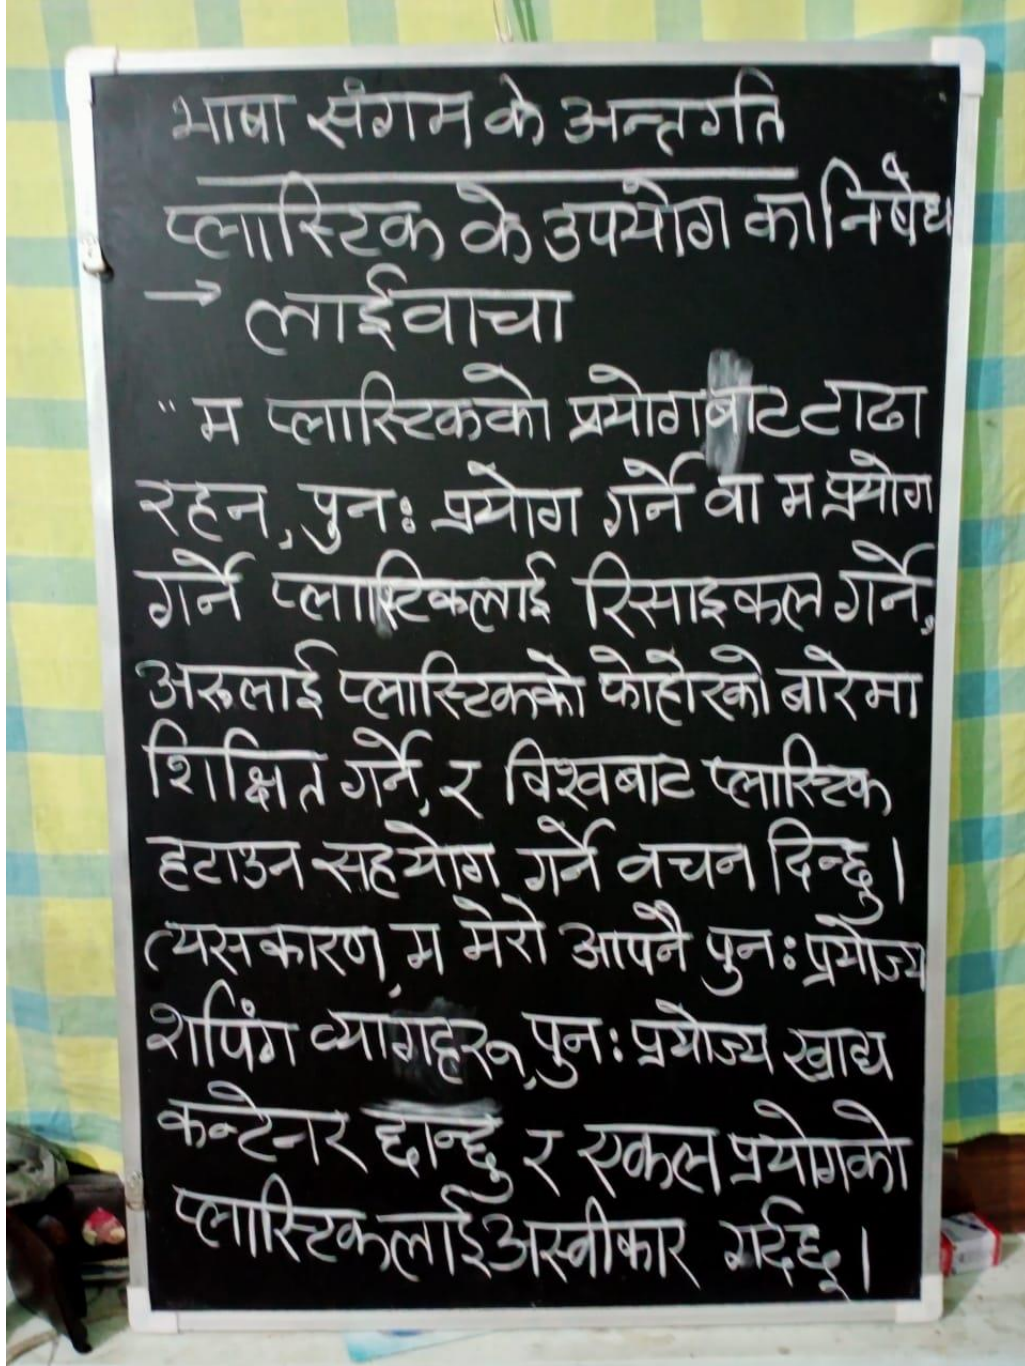 भाषा संगम के अन्तर्गत
प्लास्टिक के उपयोग का निषेध
→ लाईवाचा
" म प्लास्टिकको प्रयोगबाट टाढा
रहन, पुनः प्रयोग गर्ने वा म प्रयोग
गर्ने प्लास्टिकलाई रिसाइकल गर्ने,
अरुलाई प्लास्टिकको फोहोरको बारेमा
शिक्षित गर्ने, र विश्वबाट प्लास्टिक
हटाउन सहयोग गर्ने वचन दिन्छु।
त्यसकारण, म मेरो आफ्नै पुनः प्रयोज्य
शपिंग ब्यागहरू, पुनः प्रयोज्य खाद्य
कन्टेनर छान्छु र एकल प्रयोगको
प्लास्टिकलाई अस्वीकार गर्दछु।